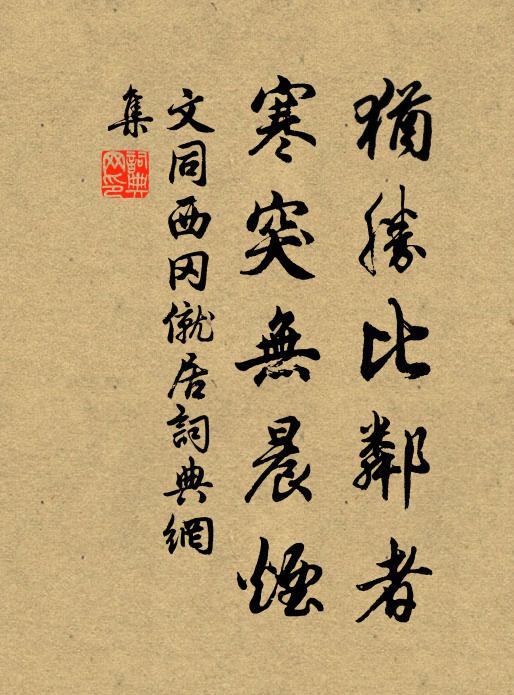 猶勝比鄰者
寒突無晨煙
文同西岡僦居詞典網
集
詞典網印